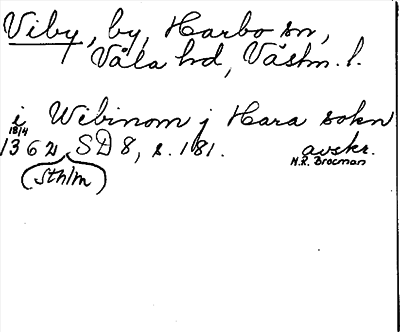 Viby, by, Harbo sn,
Våla hd, Västm. l.
i Webinom j Hara sokn
18/4
1362, SD 8, s. 181. avskr.
(Sthlm) N.R. Brocman